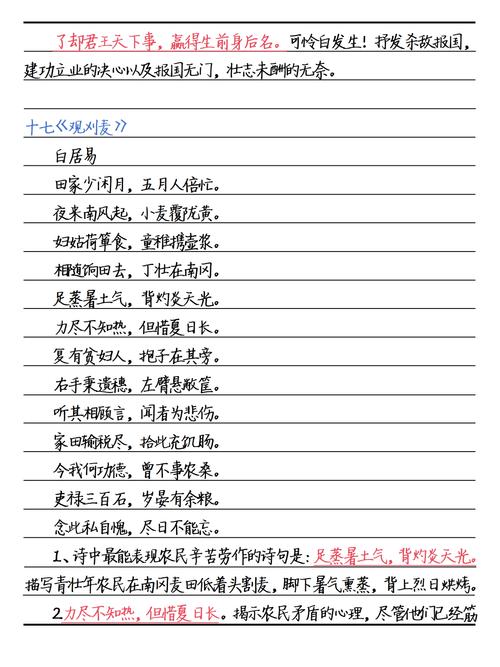 了却君王天下事，赢得生前身后名。可怜白发生！抒发杀敌报国，
建功立业的决心以及报国无门，壮志未酬的无奈。
十七《观刈麦》
白居易
田家少闲月，五月人倍忙。
夜来南风起，小麦覆陇黄。
妇姑荷箪食，童稚携壶浆。
相随饷田去，丁壮在南冈。
足蒸暑土气，背灼炎天光。
力尽不知热，但惜夏日长。
复有贫妇人，抱子在其旁。
右手秉遗穗，左臂悬敝筐。
听其相顾言，闻者为悲伤。
家田输税尽，拾此充饥肠。
今我何功德，曾不事农桑。
吏禄三百石，岁晏有余粮。
念此私自愧，尽日不能忘。
1、诗中最能表现农民辛苦劳作的诗句是：足蒸暑土气，背灼炎天光。
描写青壮年农民在南冈麦田低着头割麦，脚下暑气熏蒸，背上烈日烘烤。
2.力尽不知热，但惜夏日长。揭示农民矛盾的心理，尽管他们已经筋